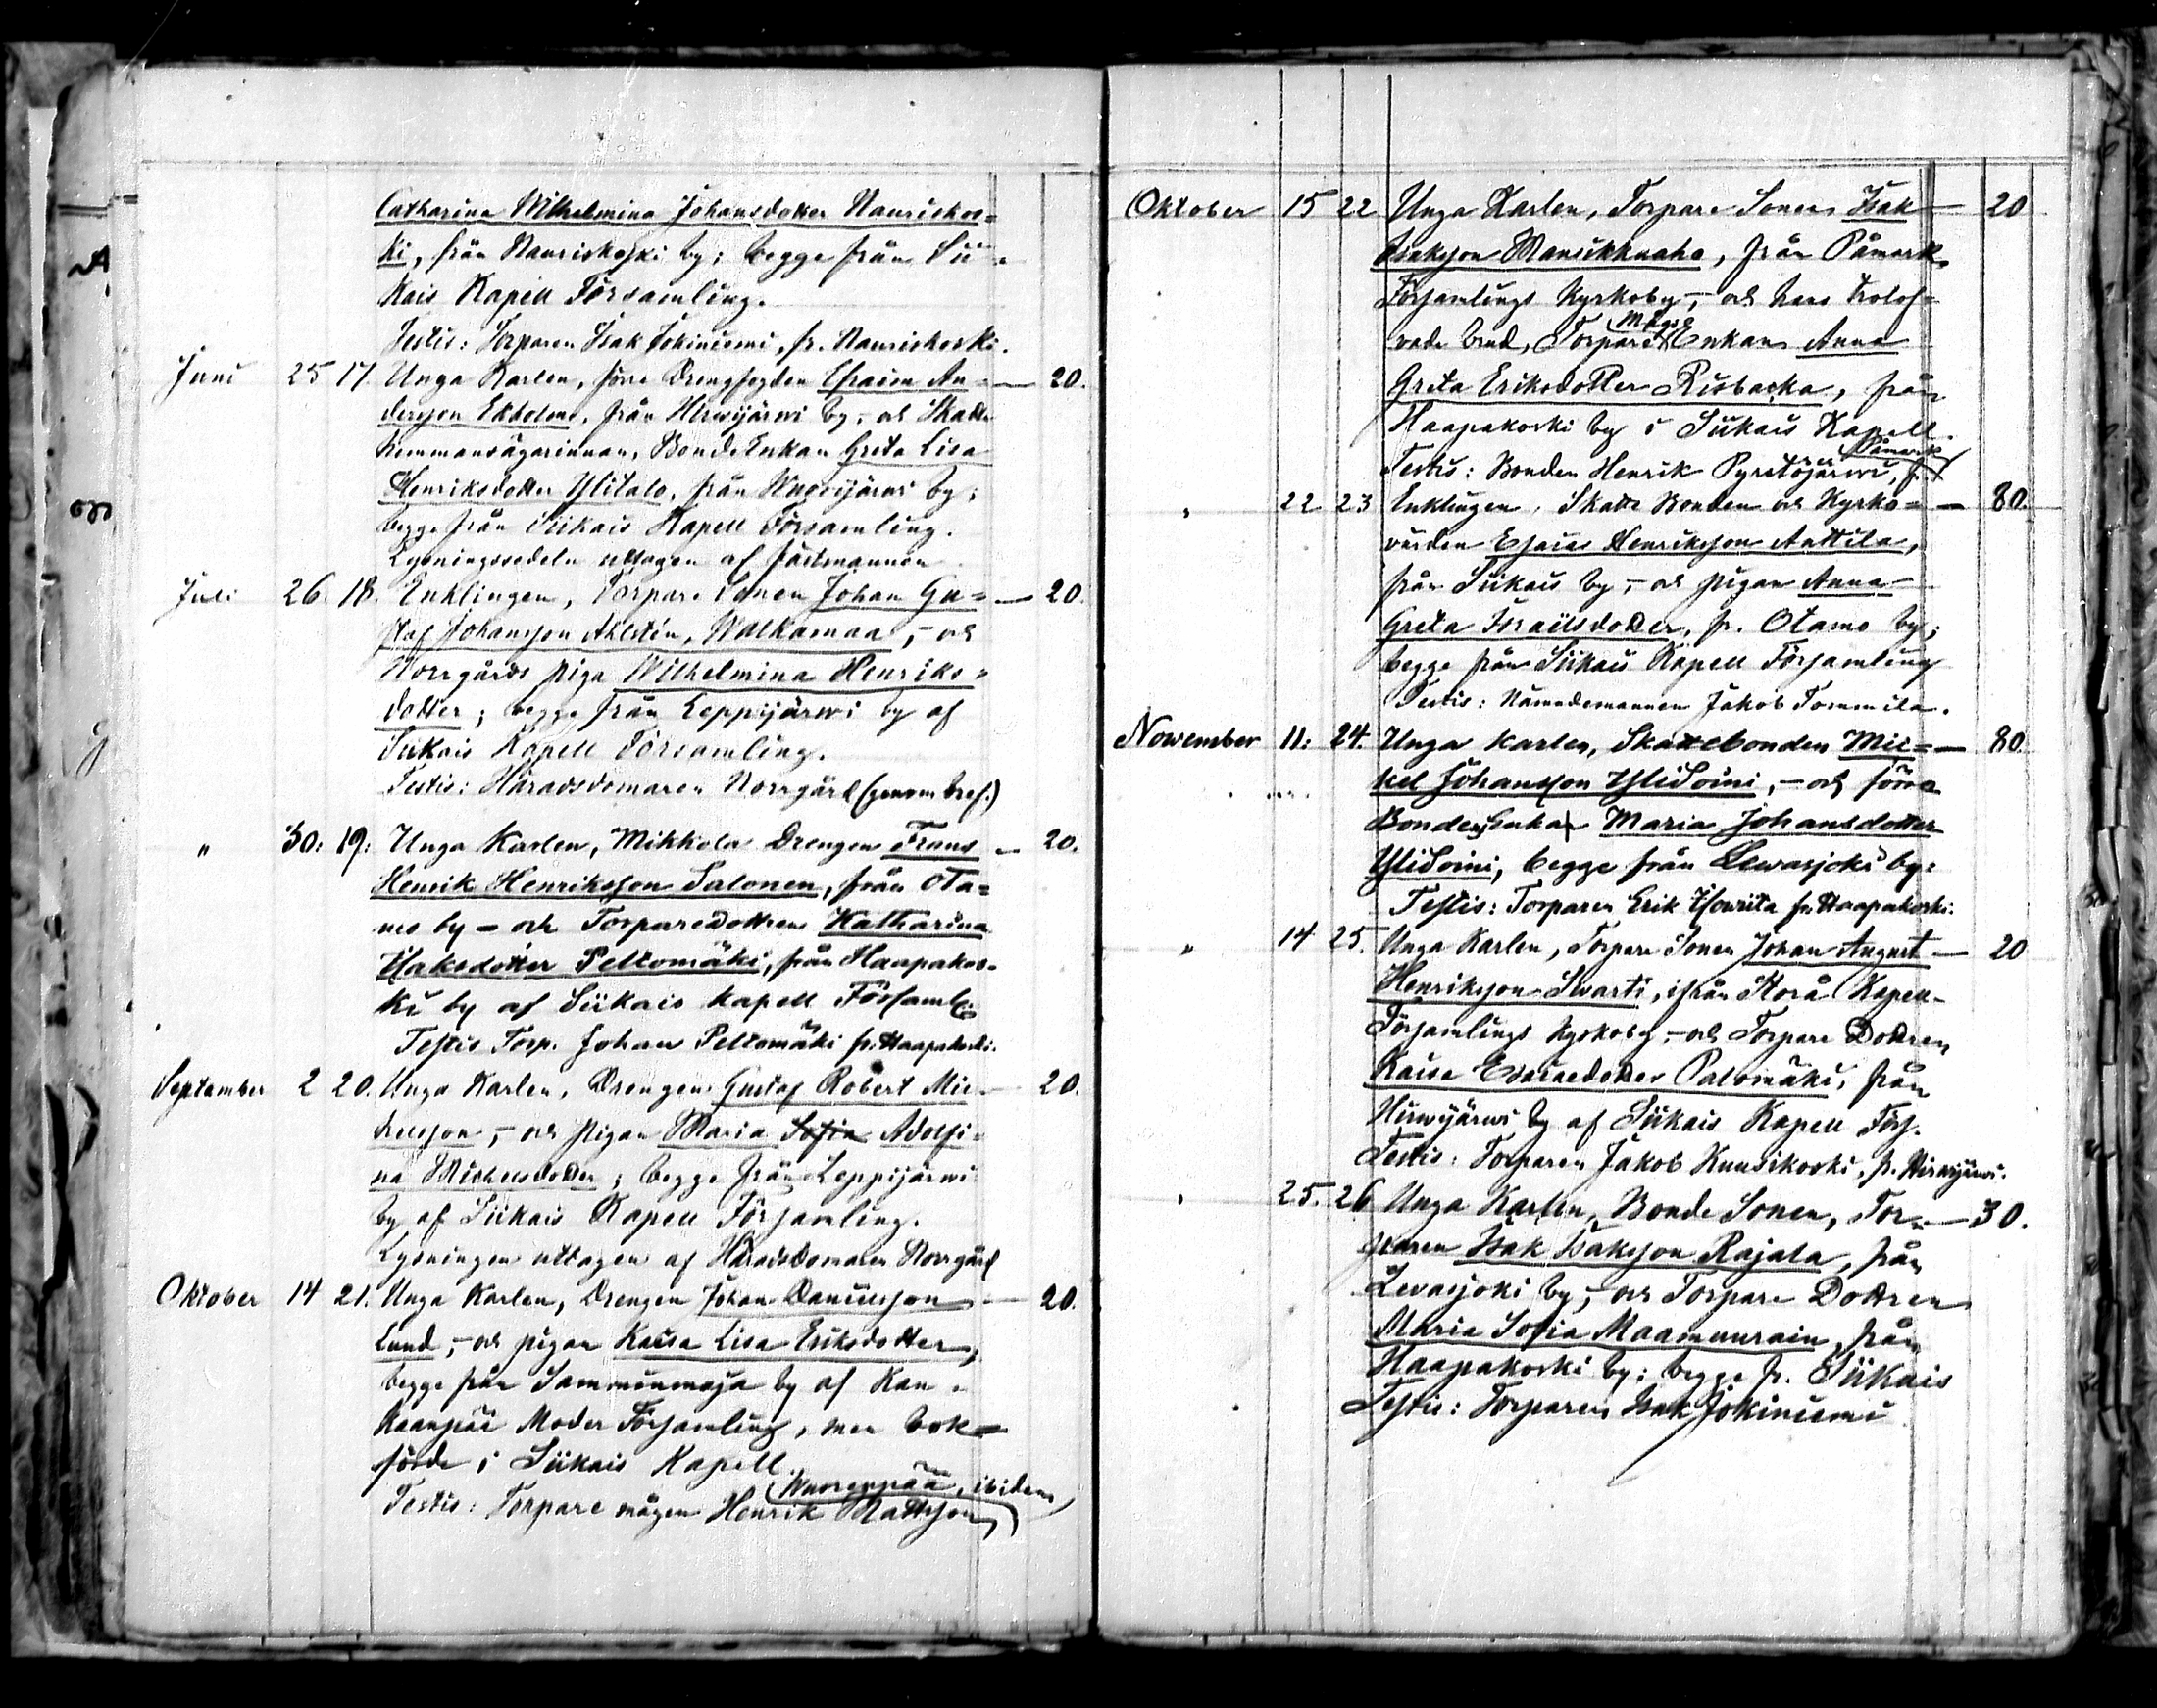 Catharina Wilhelmina Johansdotter Nauriskos=
ki, från Nauriskoski by; begge från Sii=
kais Kapell Församling.
Testis: Torparen Isak Jokiniemi, fr. Nauriskoski.
Juni 25 17. Unga Karlen, förre Drengfogden Efraim An= — 20.
dersson Ekholm, från Hirwijärwi by, och Skatte
hemmansägarinnan, BondeEnkan Greta Lisa
Henriksdotter Ylitalo, från by;
begge från Siikais Kapell Församling.
Lysningssedeln uttagen af fästmannen
Juli 26. 18. Enklingen, Torpare Sonen Johan Gu= — 20.
staf Johansson Ahlstén, Walkamaa, – och
Norrgårds piga Wilhelmina Henriks=
dotter; begge från Leppijärwi by af
Siikais Kapell Församling.
Testis: Häradsdomaren Norrgård (genom bref.)
" 30: 19: Unga Karlen, Mikkola Drengen Frans — 20.
Henrik Henriksson Salonen, från Ota=
mo by – och Torparedottren Katharina
Isaksdotter Peltomäki, från Haapakos=
ki by af Siikais kapell Församl:
Testis Torp. Johan Peltomäki fr. Haapakoski.
September 2 20. Unga Karlen, Drengen Gustaf Robert Mic= — 20.
helsson, – och pigan Maria Sofia Adolfi=
na Michelsdotter; begge från Leppijärwi
by af Siikais Kapell Församling.
Lysningen uttagen af Häradsdomaren Norrgård
Oktober 14 21. Unga Karlen, Drengen Johan Danielsson — 20.
Lund, – och pigan Kaisa Lisa Eriksdotter,
begge från Samminmaja by af Kan=
kaanpää Moder Församling, men bok=
förde i Siikais Kapell.
Wuorenpää, ibidem
Testis: Torpare mågen Henrik Mattsson
Oktober 15 22 Unga Karlen, Torpare Sonen Isak — 20
Isaksson Mansikkaaho, från Påmark
Församlings Kyrkoby, – och hans trolof=
Mågs
vade brud, Torpare Enkan Anna
Greta Eriksdotter Risbacka, från
Haapakoski by i Siikais Kapell.
Påmark
Testis: Bonden Henrik Pyretöjärwi, fr.
" 22 23 Enklingen, Skatte Bonden och Kyrko= — 80.
värden Esaias Henriksson Anttila,
från Siikais by, – och pigan Anna
Greta Israilsdotter, fr. Otamo by;
begge från Siikais Kapell Församling
Testis: Nämndemannen Jakob Tommila.
November 11: 24. Unga karlen, Skattebonden Mic= — 80.
kel Johansson YliSoini, – och förra
BondeEnkan Maria Johansdotter
YliSoini, begge från Lewasjoki by:
Testis: Torparen Erik fr. Haapakoski.
" 14 25. Unga Karlen, Torpare Sonen Johan August — 20
Henriksson Swarti, ifrån Storå Kapell
Församlings kyrkoby, – och Torpare Dottren
Kaisa Esaiaedotter Palomäki, från
Hirwijärwi by af Siikais Kapell Förs.
Testis: Torparen Jakob Kuusikoski, fr. Hirwijärwi.
" 25. 26 Unga Karlen, Bonde Sonen, Tor= — 30.
paren Isak Isaksson Rajala, från
Levasjoki by, – och Torpare Dottren
Maria Sofia Maamuurain, från
Haapakoski by; begge fr. Siikais
Testis: Torparen Isak Jokiniemi